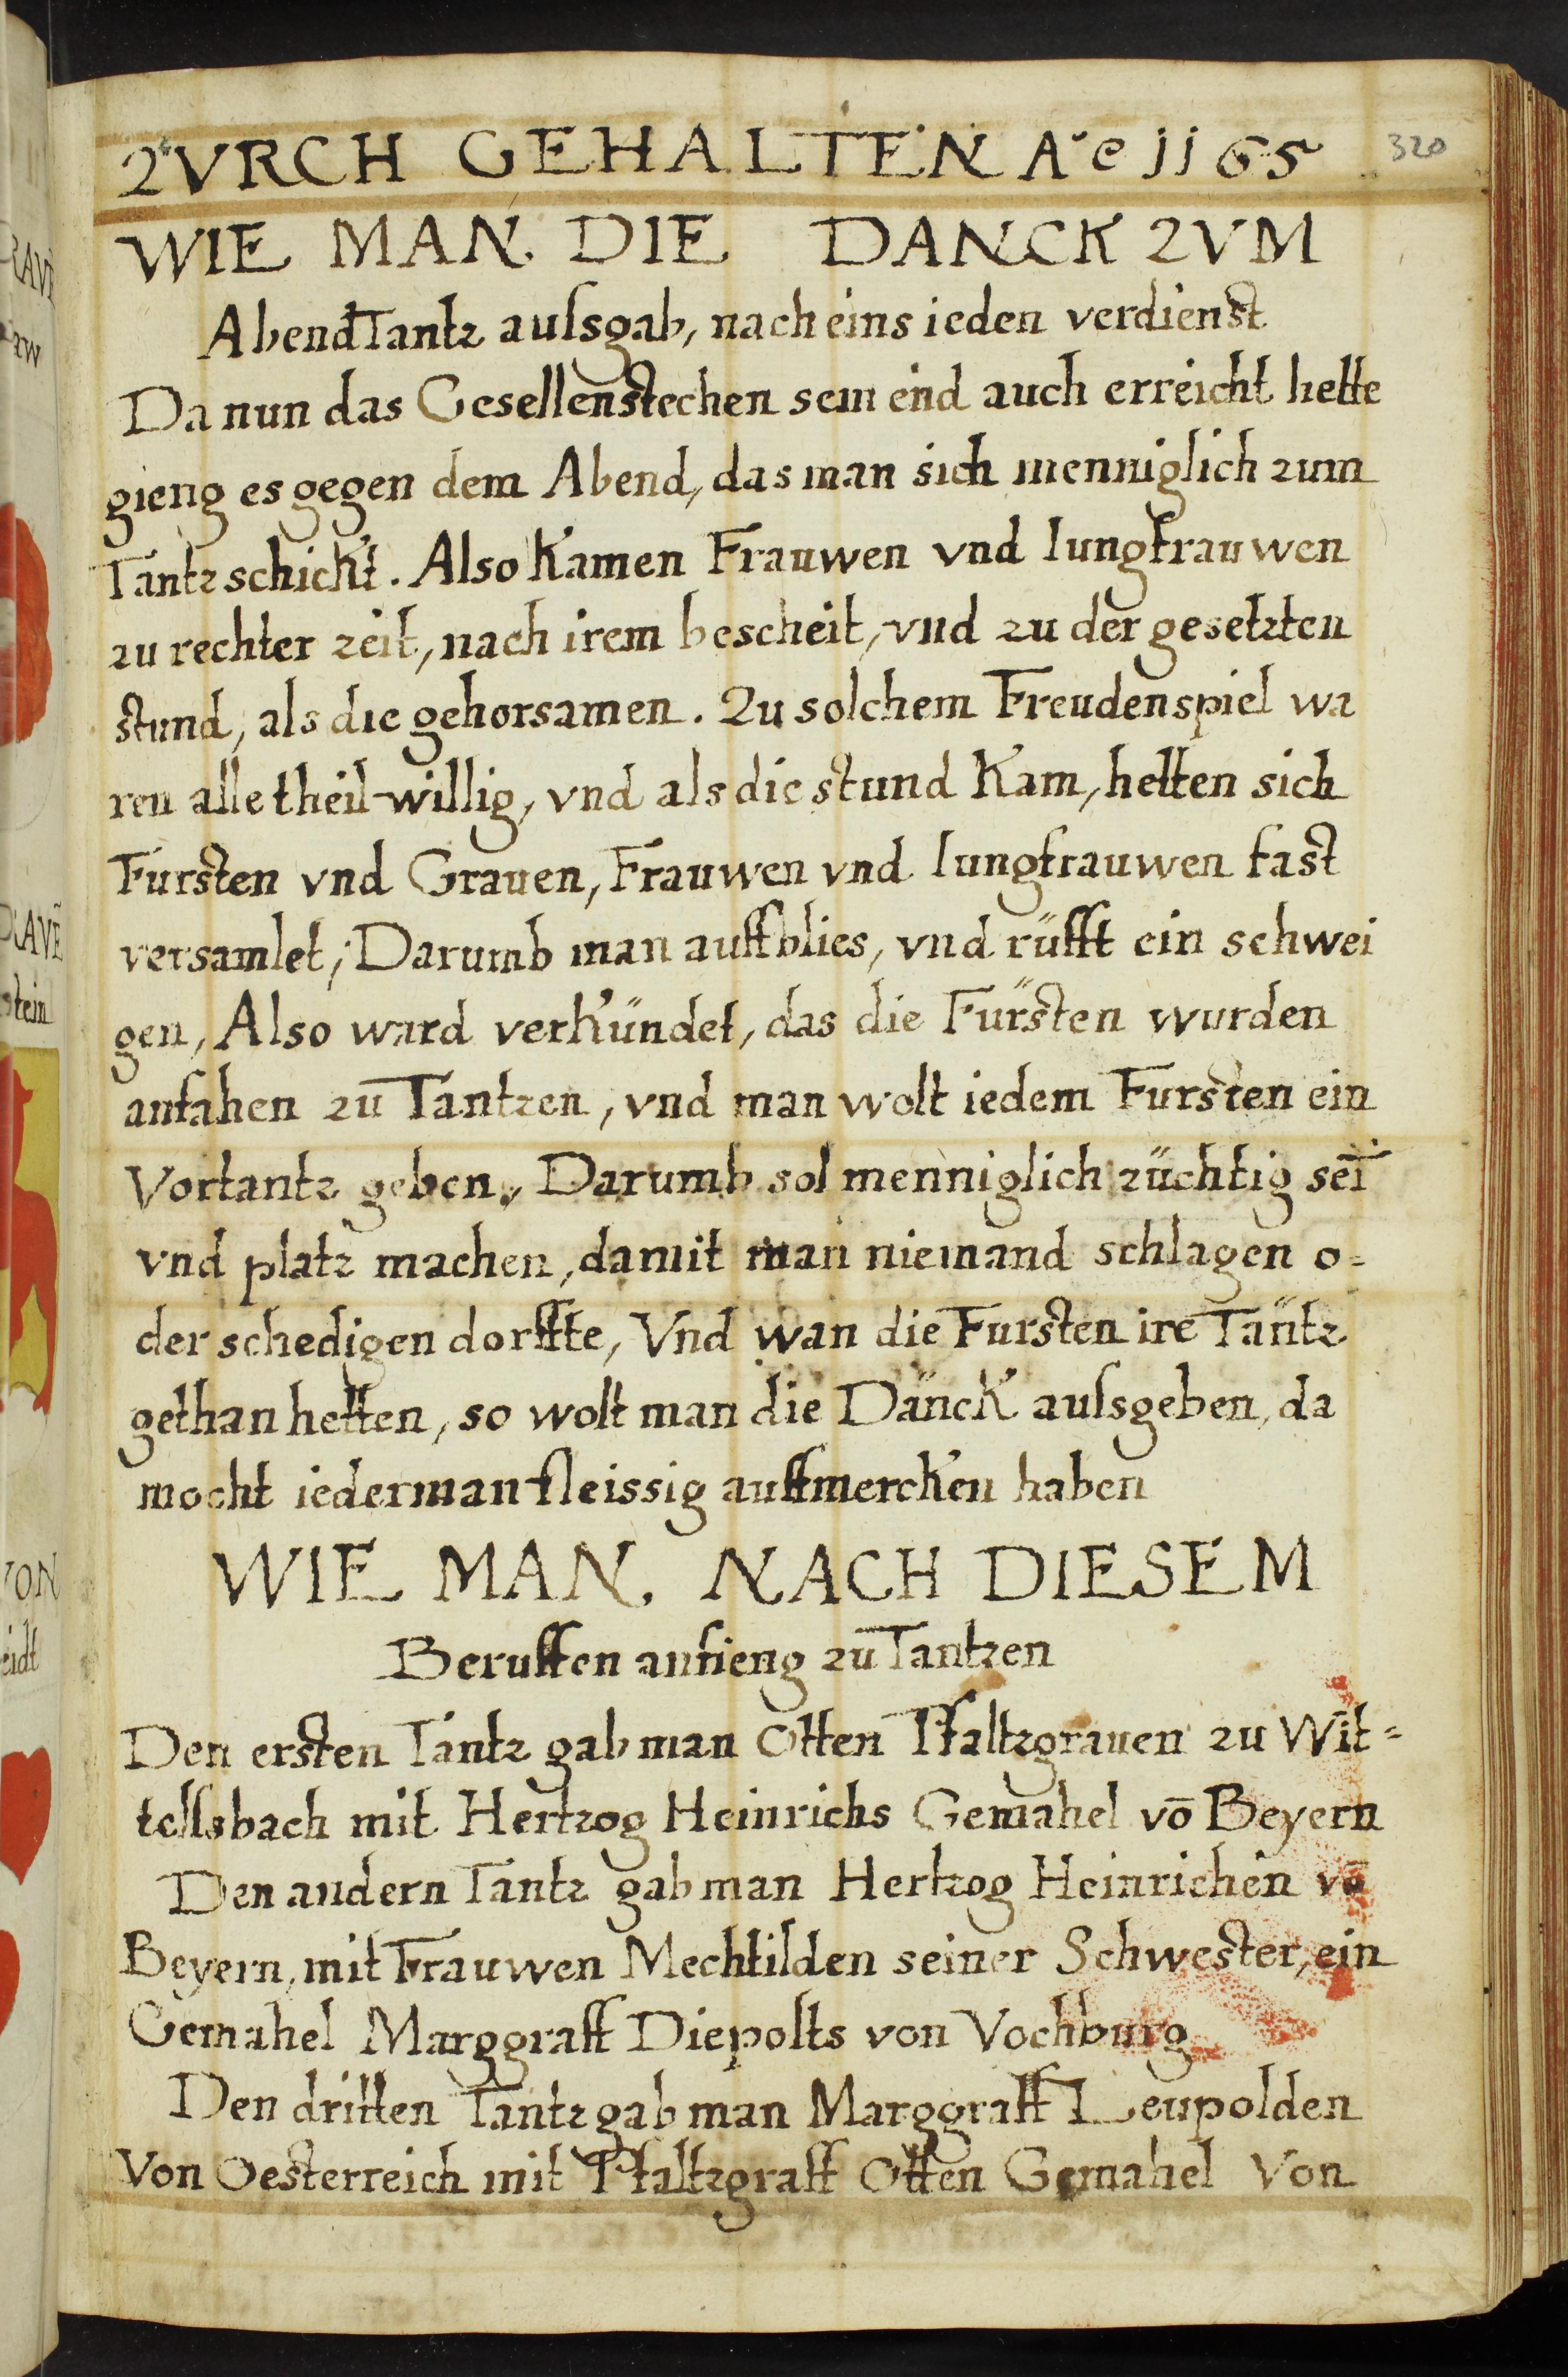 ZVRCH GEHALTEN A°e jj65
320
WIE MAN DIE DANCK ZVM
AbendTantz ausgab, nach eins ieden verdienst
Da nun das Gesellenstechen sein end auch erreicht hette
gieng es gegen dem Abend, das man sich menniglich zum
Tantz schickt. Also kamen Frauwen vnd Iungfrauwen
zu rechter zeit, nach irem bescheit, vnd zu der gesetzten
stund, als die gehorsamen. Zu solchem Freudenspiel wa
ren alle theil willig, vnd als die stund kam, hetten sich
Fursten vnd Grauen, Frauwen vnd Iungfrauwen fast
versamlet; Darumb man auffblies, vnd rüfft ein schwei
gen, Also ward verkündet, das die Fürsten wurden
anfahen zu Tantzen, vnd man wolt iedem Fursten ein
Vortantz geben, Darumb sol menniglich züchtig sei
vnd platz machen, damit man niemand schlagen o=
der schedigen dorffte, Vnd wan die Fursten ire Täntz
gethan hetten, so wolt man die Dänck ausgeben, da
mocht iederman fleissig auffmercken haben
WIE MAN. NACH DIESEM
Beruffen anfieng zu Tantzen
Den ersten Tantz gab man Otten Pfaltzgrauen zu Wit=
tellsbach mit Hertzog Heinrichs Gemahel vō Beyern
Den andern Tantz gab man Hertzog Heinrichen vō
Beyern, mit Frauwen Mechtilden seiner Schwester, ein
Gemahel Marggraff Diepolts von Vochburg
Den dritten Tantz gab man Marggraff Leupolden
Von Oesterreich mit Pfaltzgraff Otten Gemahel Von